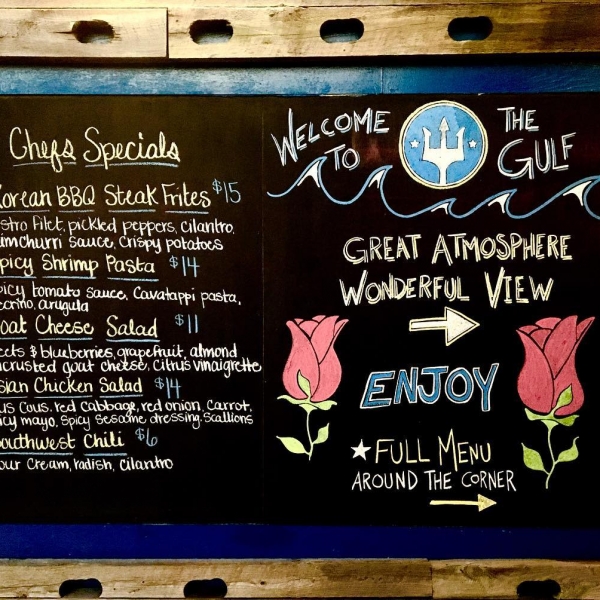 Chefs Specials
Korean BBQ Steak Frites $15
stro filet, pickled peppers, cilantro,
imchurri sauce, crispy potatoes
picy Shrimp Pasta $14
picy tomato sauce, Cavatappi pasta,
ecorino, arugula
oat Cheese Salad $11
eets & blueberries, grapefruit, almond
ncrusted goat cheese, citrus vinaigrette
sian Chicken Salad $14
us cous, red cabbage, red onion, carrot,
icy mayo, spicy sesame dressing, scallions
outhwest Chili $6
our cream, radish, cilantro
WELCOME TO
THE GULF
GREAT ATMOSPHERE
WONDERFUL VIEW
ENJOY
FULL MENU
AROUND THE CORNER